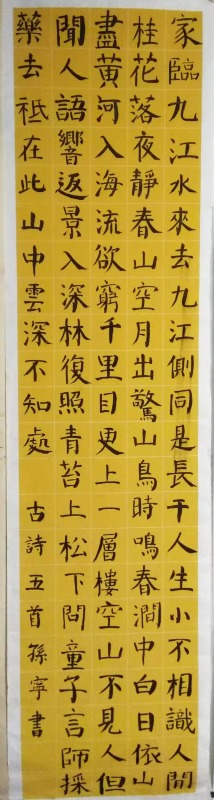 家臨九江水來去九江側同是長干人生小不相識人閒
桂花落夜靜春山空月出驚山鳥時鳴春澗中白日依山
盡黃河入海流欲窮千里目更上一層樓空山不見人但
聞人語響返景入深林復照青苔上松下問童子言師採
藥去祗在此山中雲深不知處 古詩五首 孫寧書